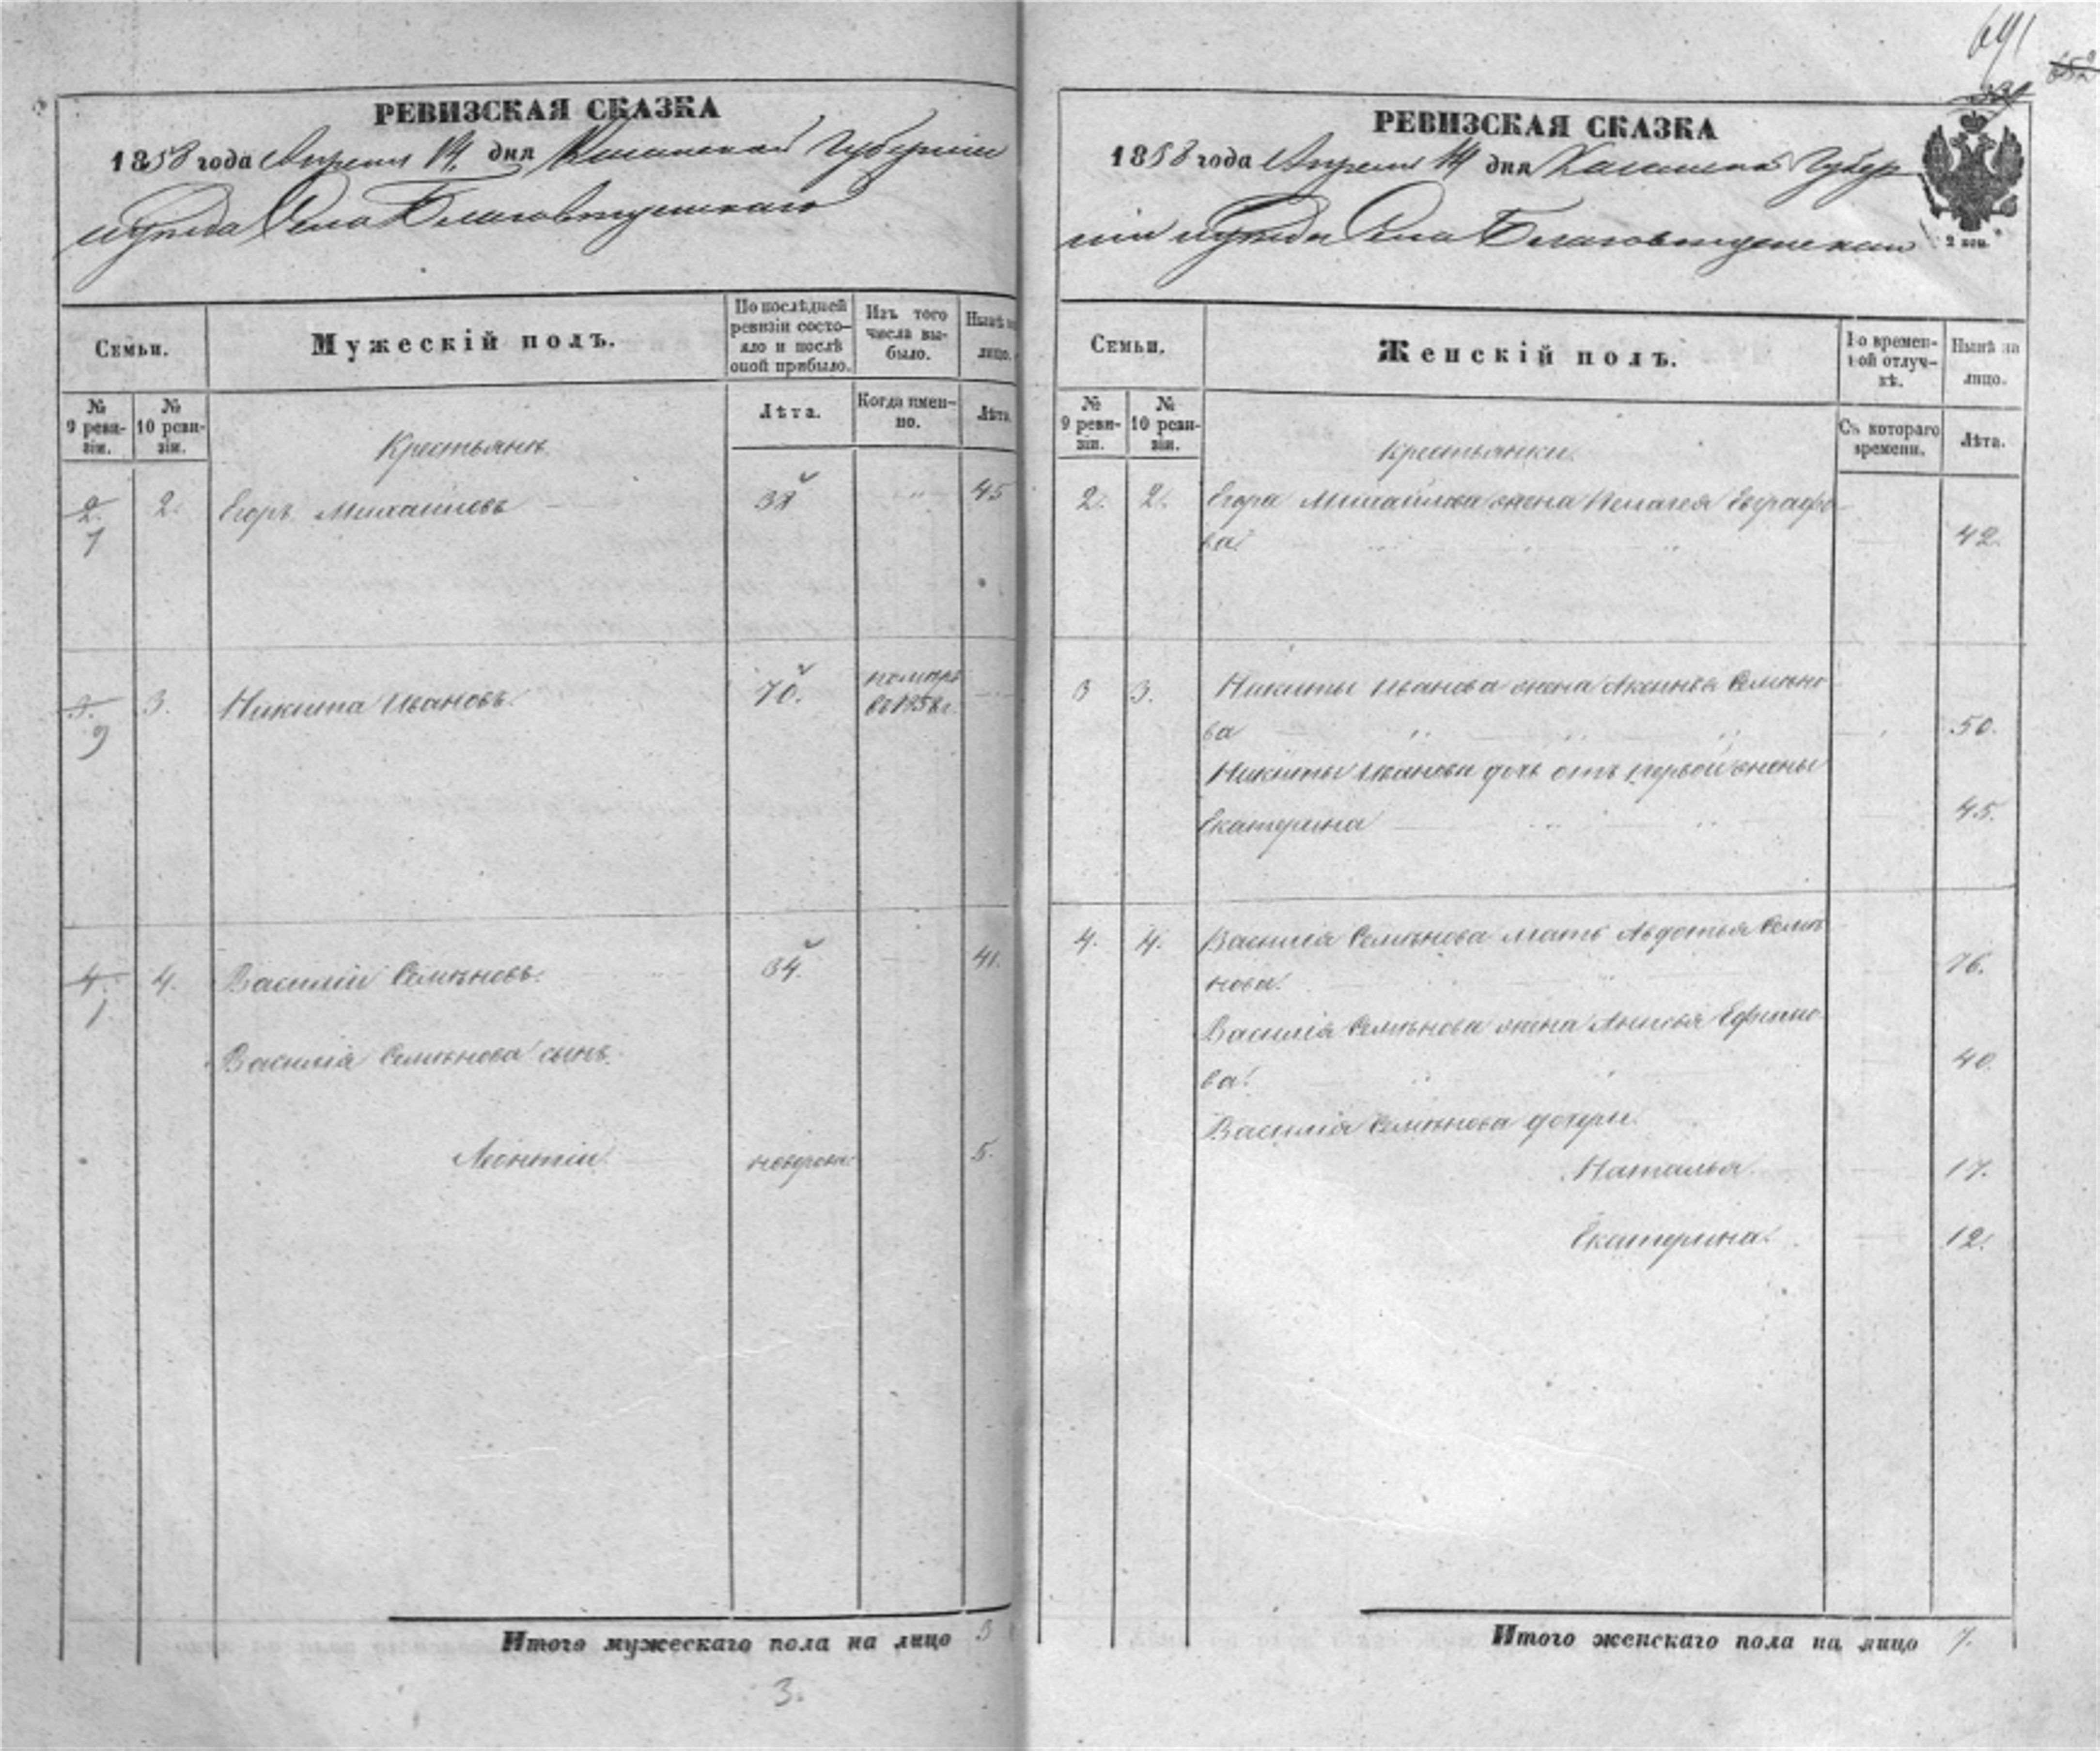 РЕВИЗСКАЯ СКАЗКА
1858 года Апреля 14. дня Казанской Губернии
и уѣзда Села Благовещенскаго
Семьи.
Мужескій полъ.
По послѣдней ревизіи состояло и послѣ оной прибыло.
Изъ того числа выбыло.
Нынѣ на лицо.
№ 9 ревизіи.
№ 10 ревизіи.
Крестьяне.
Лѣта.
Когда именно.
Лѣта.
2. 7
2.
Егоръ Михайловъ
38
45
3. 9
3.
Никита Ивановъ.
70.
померъ въ 185 г.
4. 1
4.
Василій Семѣновъ.
34.
41.
Василія Семѣнова сынъ.
Леонтій.
новорож.
5.
Итого мужескаго пола на лицо 3
3.
691
652
РЕВИЗСКАЯ СКАЗКА
1858 года Апреля 14 дня Казанской Губер
ніи и уѣзда Села Благовещенскаго
2 коп.
Семьи.
Женскій полъ.
Во временной отлучкѣ.
Нынѣ на лицо.
№ 9 ревизіи.
№ 10 ревизіи.
Крестьянки.
Съ котораго времени.
Лѣта.
2.
2.
Егора Михайлова жена Пелагея Евграфо
ва.
42.
3
3.
Никиты Иванова жена Аксинья Семѣно
ва
50.
Никиты Иванова дочь отъ первой жены
Екатерина
45.
4.
4.
Василія Семѣнова мать Авдотья Семѣ
нова.
76.
Василія Семѣнова жена Анисья Ефимо
ва.
40.
Василія Семѣнова дочери.
Наталья.
17.
Екатерина.
12.
Итого женскаго пола на лицо 7.